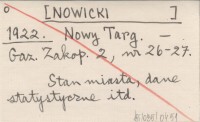 [NOWICKI ]
1922. Nowy Targ. —
Gaz. Zakop. 2, nr 26-27.
Stan miasta, dane
statystyczne itd.